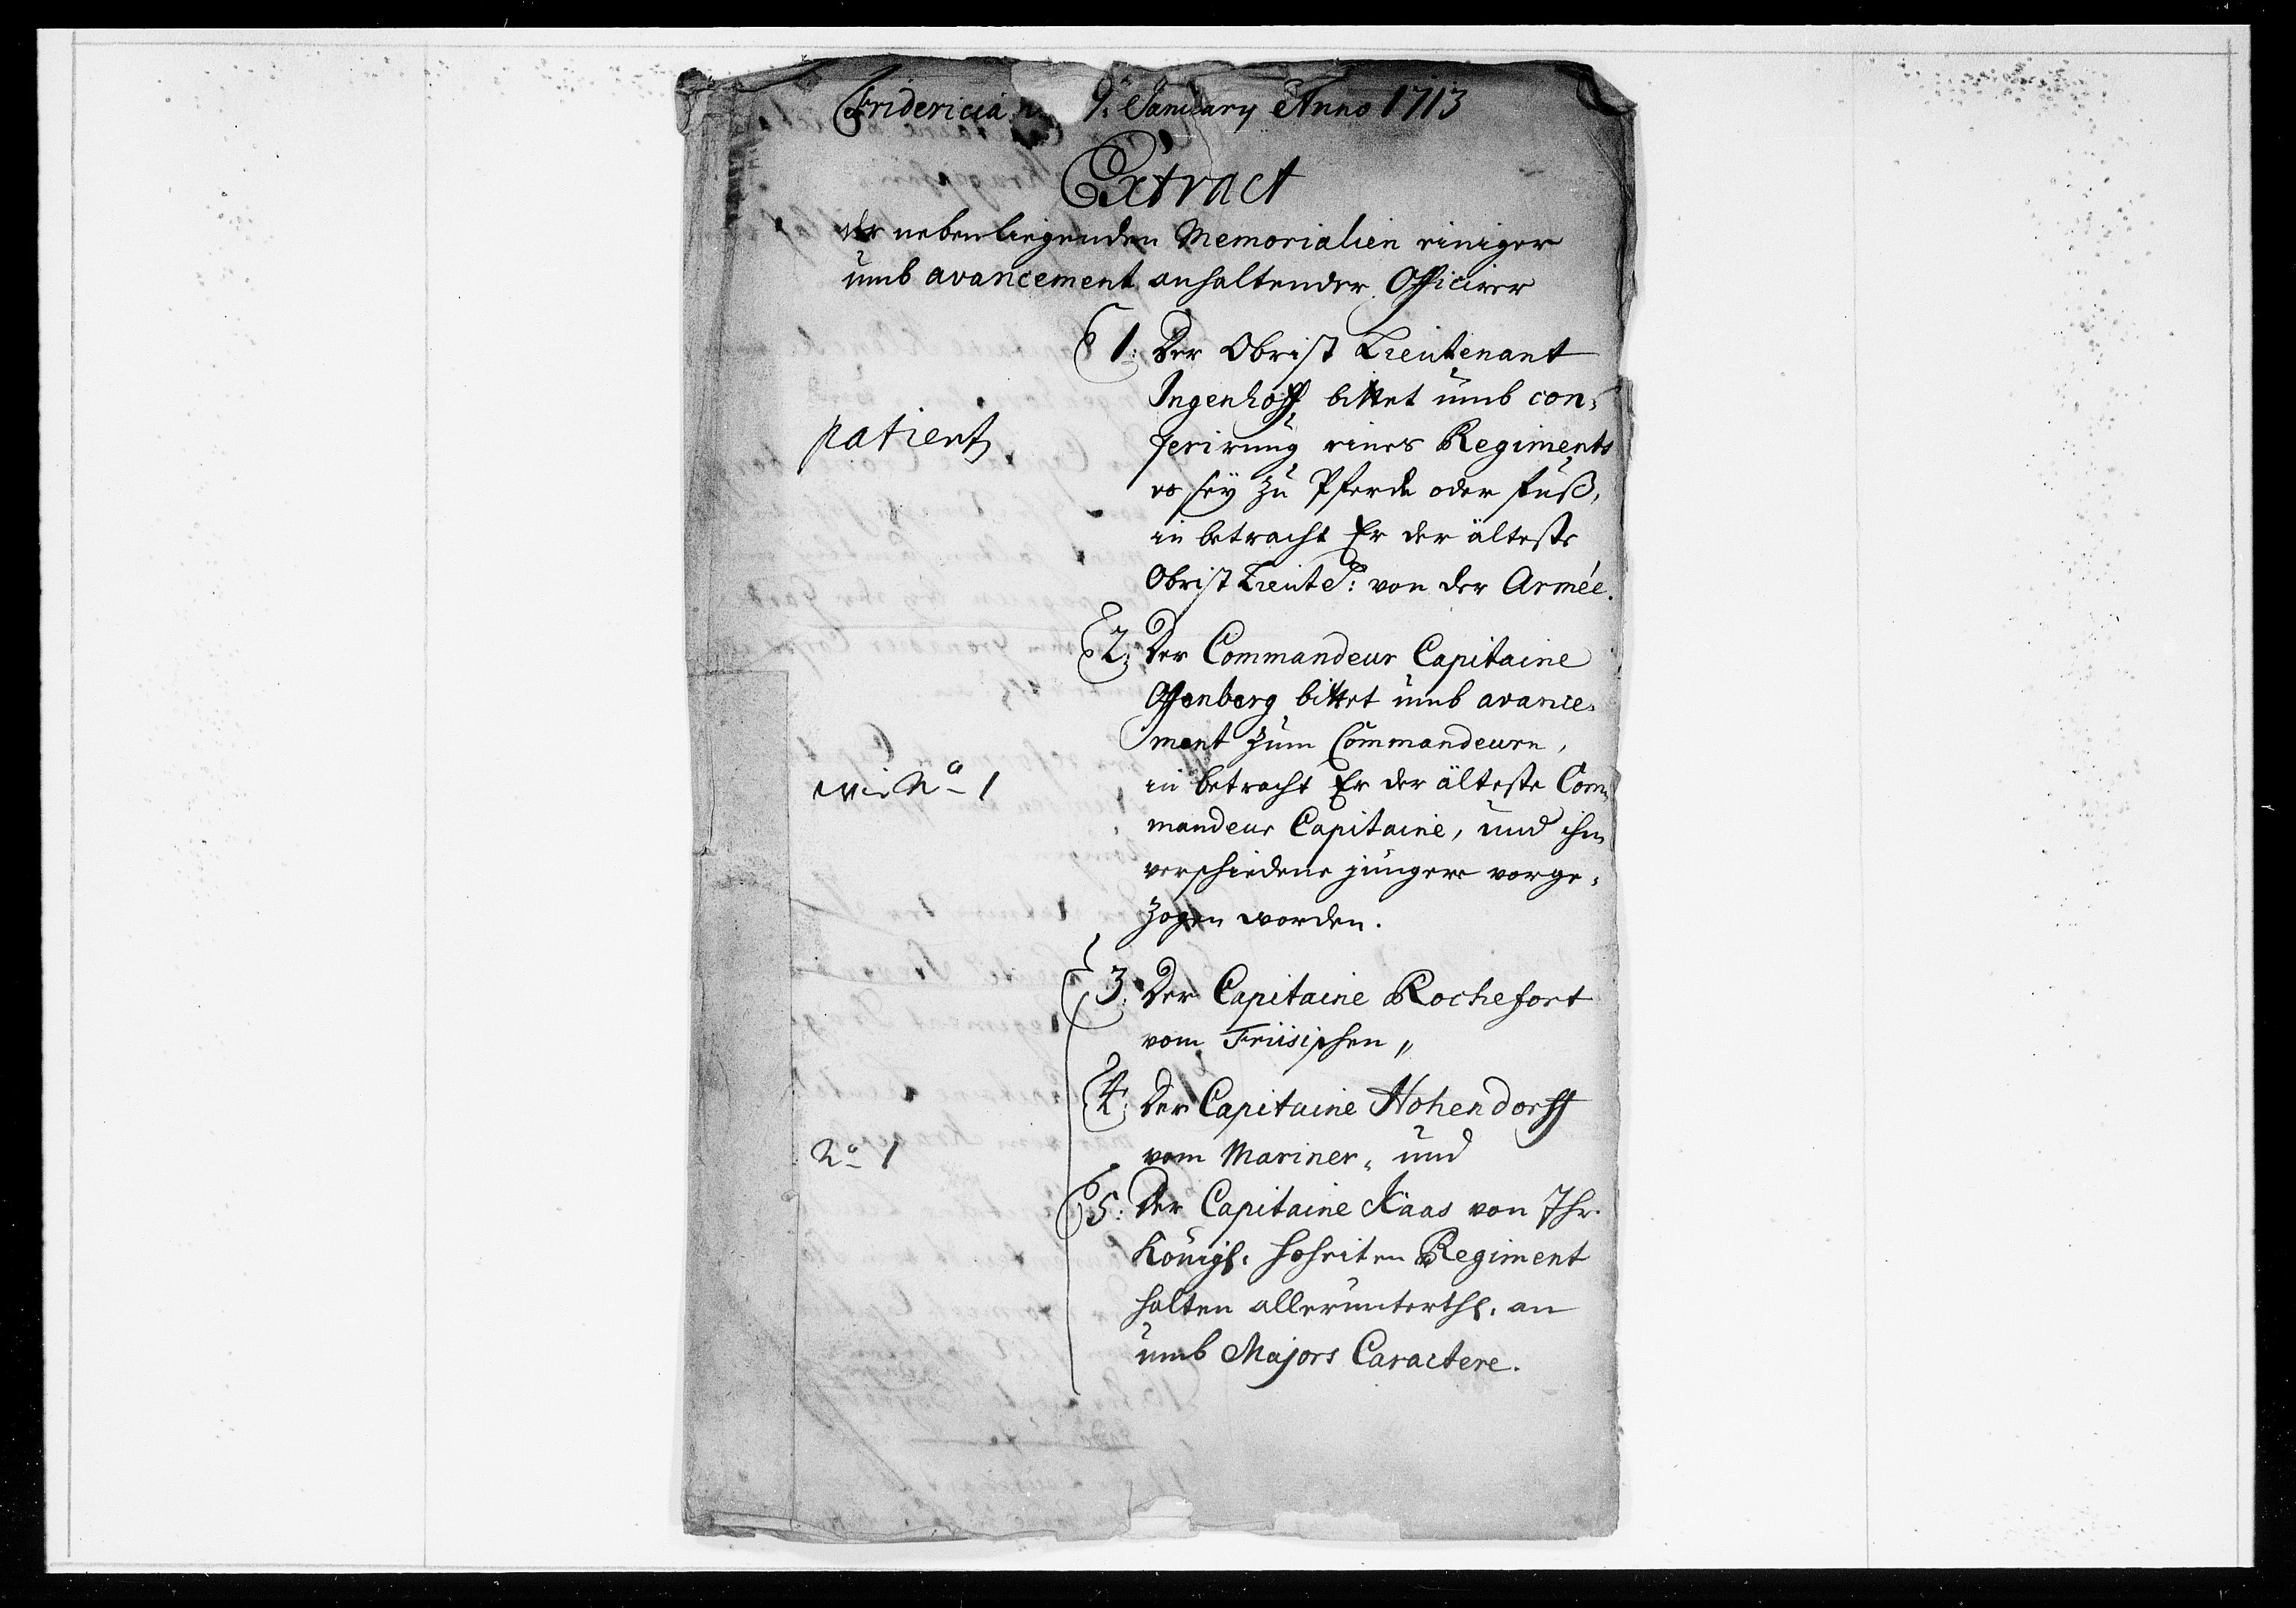 Fridericia 9: January Anno 1713
Extract
der nebenliegenden Memorialien einiger
umb avancement anhaltender Officirer
1: Der Obrist Lieutenant
Ingenhoff, bittet umb con-
ferirung eines Regiments
patient
es sey zu Pferde oder fuß,
in betracht Er der älteste
Obrist Lieut: von der Armée.
2: Der Commandeur Capitaine
Offenberg bittet umb avance-
ment zum Commandeurn,
wie No 1
in betracht Er der älteste Com-
mandeur Capitaine, und ihm
verschiedene jüngere vorge-
zogen worden.
3: Der Capitaine Rochefort
vom Früsischen "
4: Der Capitaine Hohendorff
No 1
vom Mariner " und
5: Der Capitaine Kaas von Ihr.
Königl. Hoheiten Regiment
halten allerunterthl. an
umb Majors Caractere.